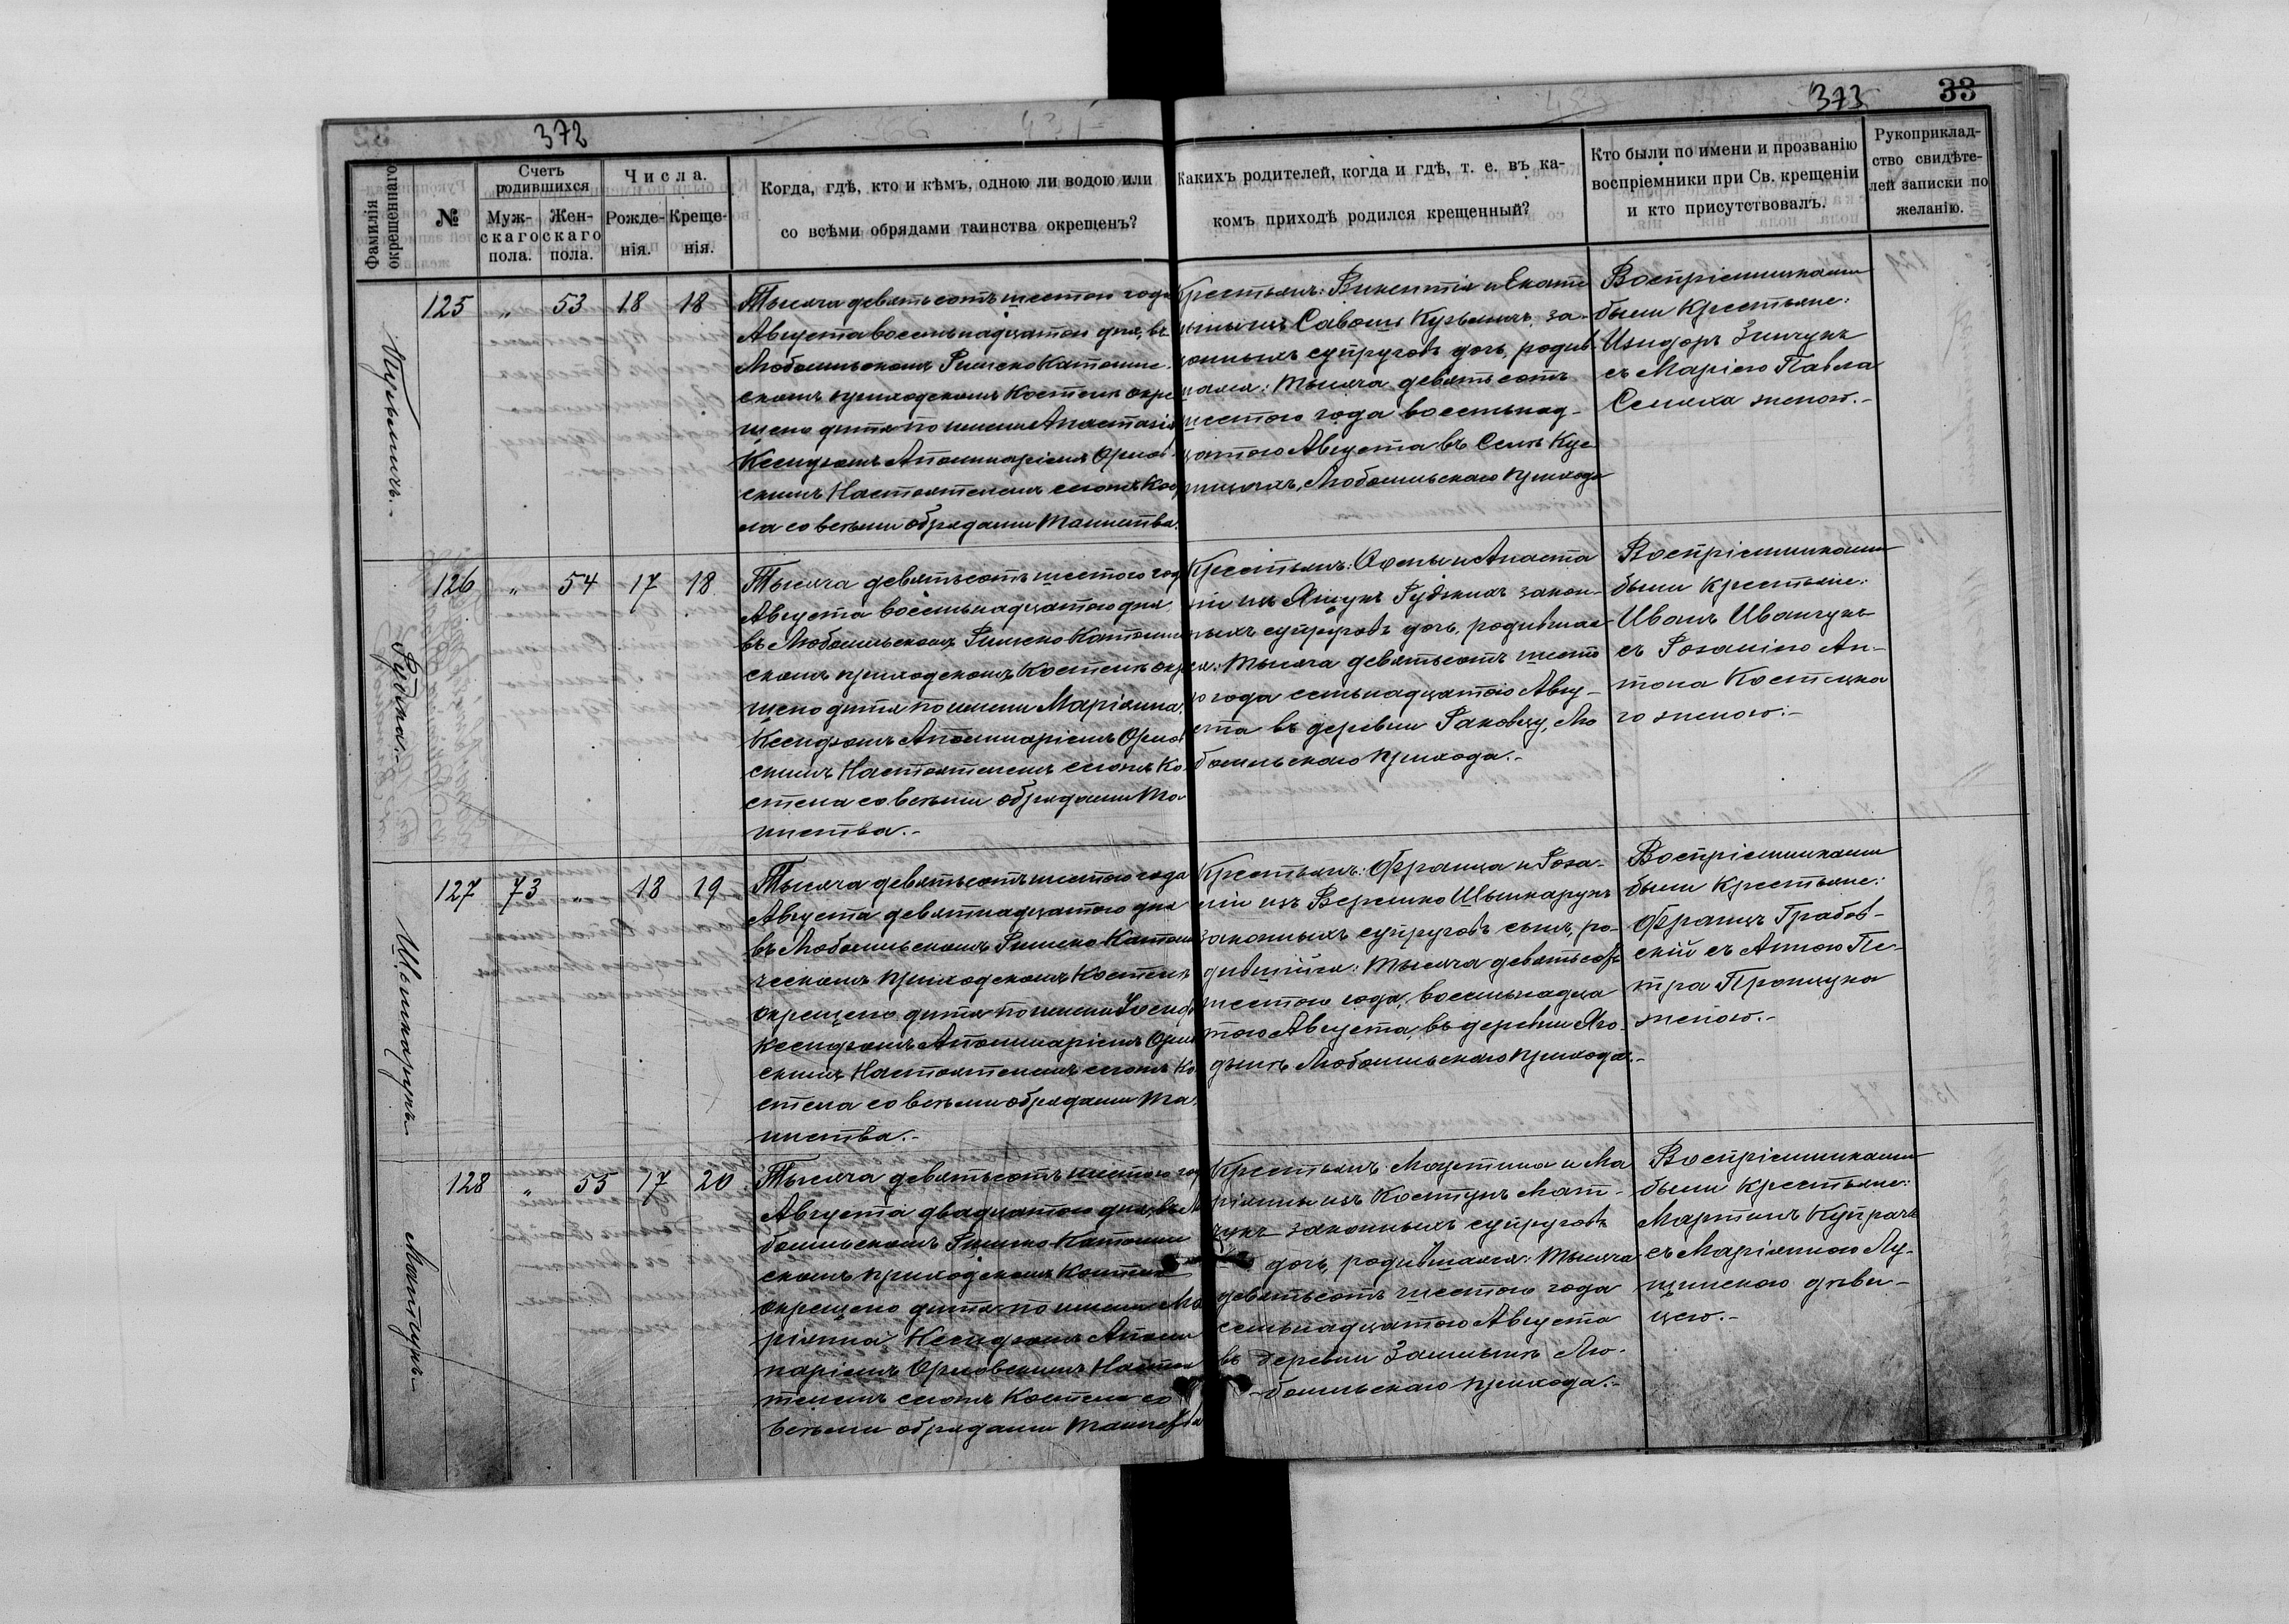 372
373
33
Фамилія окрещеннаго
№
Счетъ родившихся
Муж-
скаго
пола.
Жен-
скаго
пола.
Числа.
Рожде-
нія.
Креще-
нія.
Когда, гдѣ, кто и кѣмъ, одною ли водою или
со всѣми обрядами таинства окрещенъ?
Какихъ родителей, когда и гдѣ, т. е. въ ка-
комъ приходѣ родился крещенный?
Кто были по имени и прозванію
воспріемники при Св. крещеніи
и кто присутствовалъ.
Рукоприклад-
ство свидѣте-
лей записки по
желанію.
125 " 53 18 18
Тысяча девятьсотъ шестого года
Августа восемьнадцатого дня, въ
Любомльскомъ Римско Католиче-
скомъ приходскомъ Костелѣ окре
щено дитя по имени Анастазія
Ксендзомъ Аполинаріемъ Орлов-
скимъ Настоятелемъ сего
ла со всѣми обрядами Таинства.
Крестьянъ: Викентія и Екате
изъ Савошъ Кузьмичъ, за-
конныхъ супруговъ дочь, родив
шаяся: Тысяча девятьсотъ
шестого года восемьнад-
цатого Августа въ Селѣ
Любомльскаго прихода
Воспріемниками
были Крестьяне:
Изидоръ Зинчукъ
съ Маріею Павла
Семяха женою.-
126 " 54 17 18
Рудика.-
Тысяча девятьсотъ шестого год
Августа восемьнадцатого дня
въ Любомльскомъ Римско Католиче
скомъ приходскомъ Костелѣ окре
щено дитя по имени Маріянна,
Ксендзомъ Аполинаріемъ Орлов
скимъ Настоятелемъ сего Ко-
стела со всѣми обрядами Та
инства.-
Крестьянъ: и Анаста
зіи изъ Ящукъ закон-
ныхъ супруговъ дочь, родившая
ся: Тысяча девятьсотъ шесто
го года семьнадцатого Авгу-
ста въ деревни Раковцу, Лю
бомльскаго прихода.-
Воспріемниками
были Крестьяне:
Иванъ Иванчукъ
съ Розаліею Ан-
тона Костецка
го женою.-
127 73 " 18 19
Тысяча девятьсотъ шестого года
Августа девятнадцатого дня
въ Любомльскомъ Римско Католи
ческомъ приходскомъ Костелѣ
окрещено дитя по имени Іосифъ
Ксендзомъ Аполинаріемъ Орлов
скимъ Настоятелемъ сего Ко
стела со всѣми обрядами Та
инства.-
Крестьянъ: Франца и Роза-
ліи изъ Верешко Шьшкарукъ
законныхъ супруговъ сынъ, ро-
дившійся: Тысяча девятьсотъ
шестого года, восемьнадца
того Августа, въ деревни Яго-
дынѣ Любомльскаго прихода.-
Воспріемниками
были Крестьяне:
Францъ Грабов-
скій съ Анною Пе-
тра Процука
женою.-
128 " 55 17 20
Матчукъ
Тысяча девятьсотъ шестого го
Августа двадцатого дня, въ Лю
бомльскомъ Римско Католиче
скомъ приходскомъ Костелѣ
окрещено дитя по имени Ма
ріянна, Ксендзомъ Аполи
наріемъ Орловскимъ Настоя
телемъ сего Костела со
всѣми обрядами Таинства
Крестьянъ: Мартина и Ма
ріянны изъ Костукъ Мат-
чукъ законныхъ супруговъ
дочь, родившаяся: Тысяча
девятьсотъ шестого года
семьнадцатого Августа
въ деревни Замлынѣ Лю-
бомльскаго прихода.-
Воспріемниками
были Крестьяне:
Мартинъ Купрачъ
съ Маріянною Лу-
щинскою дѣви-
цею.-